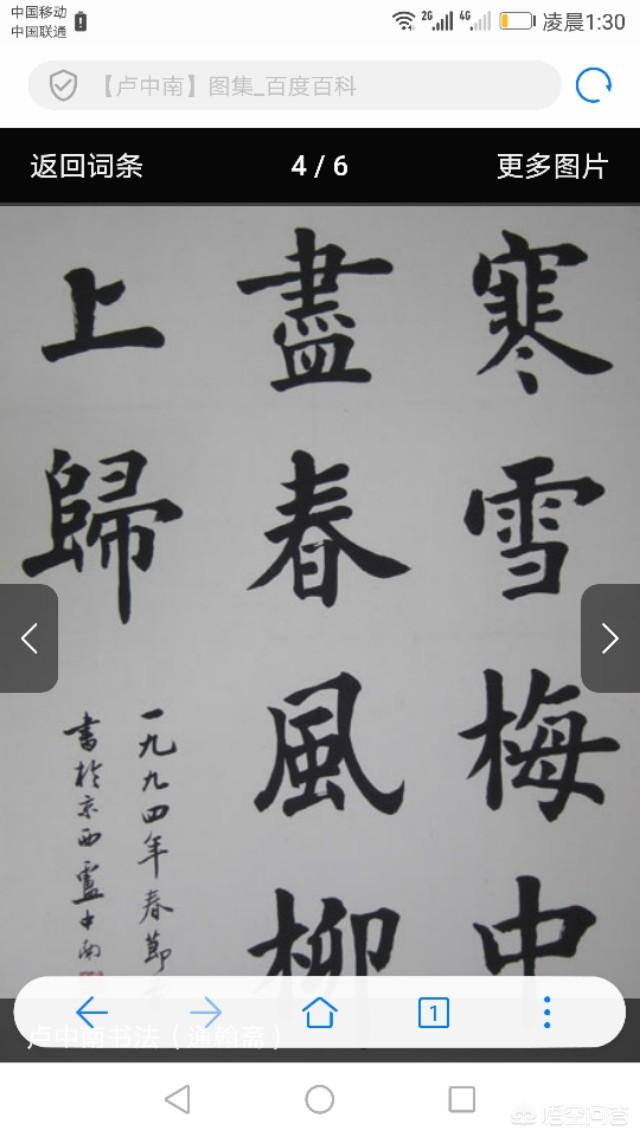 中国移动
中国联通
2G 4G 凌晨1:30
【卢中南】图集_百度百科
返回词条 4 / 6 更多图片
寒雪梅中
盡春風柳
上歸
一九九四年春節
書於京西盧中南
1
卢中南书法（通翰斋）
悟空问答